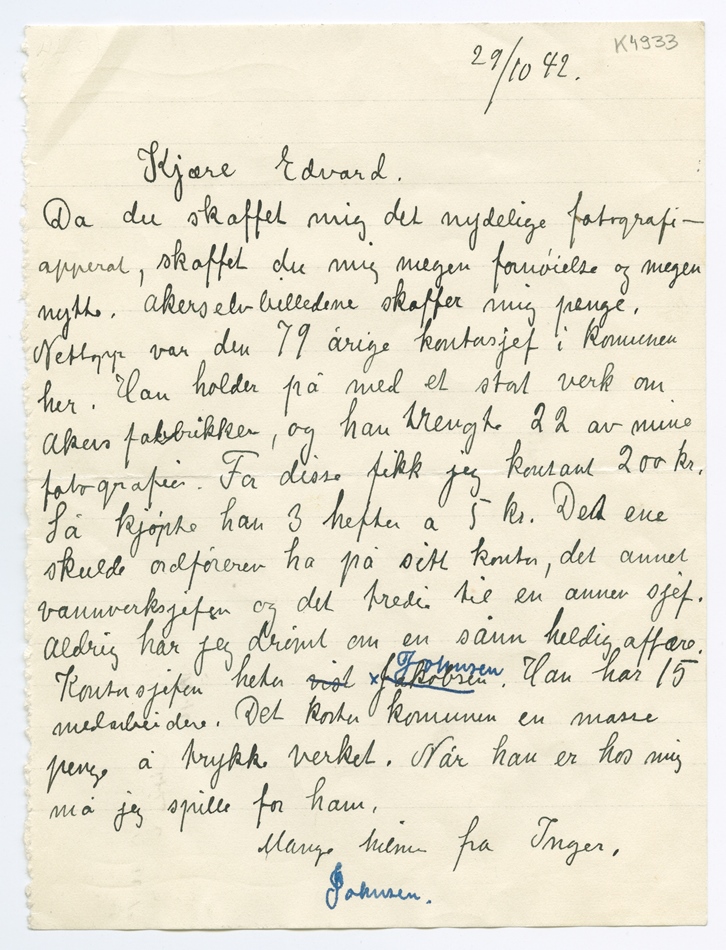 K4933
29/10 42.
Kjære Edvard.
Da du skaffet mig det nydelige fotografi-
apperat, skaffet du mig megen fornöielse og megen
nytte. Akerselv-billedene skaffer mig penge.
Nettopp var den 79 årige kontorsjef i komunen
her. Han holder på med et stort verk om
Akers fabrikker, og han trengte 22 av mine
fotografier. For disse fikk jeg kontant 200 kr.
Så kjøpte han 3 hefter a 5 kr. Det ene
skulde ordføreren ha på sitt kontor, det annet
vannverksjefen og det tredie til en annen sjef.
Aldrig har jeg drömt om en sånn heldig affære.
Kontorsjefen heter vist Jakobsen. Johnsen Han har 15
medarbeidere. Det koster komunen en masse
penge å trykke verket. Når han er hos mig
må jeg spille for ham.
Mange hilsner fra Inger.
Johnsen.